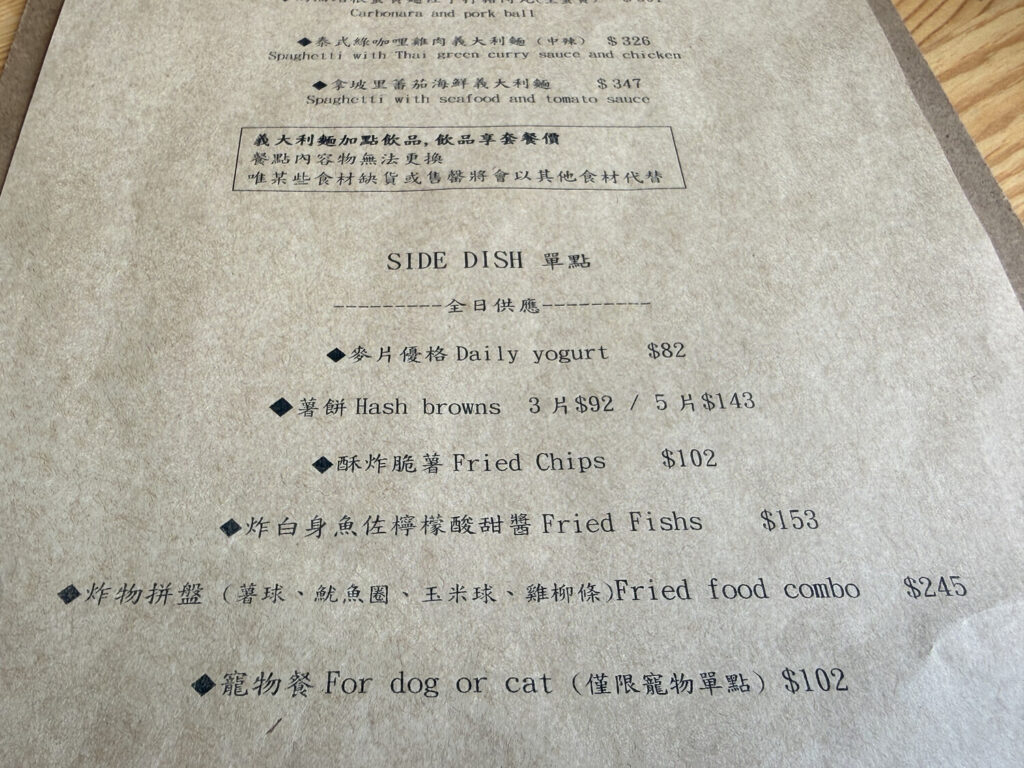 Carbonara and pork ball
◆泰式綠咖哩雞肉義大利麵（中辣） $326
Spaghetti with Thai green curry sauce and chicken
◆拿坡里蕃茄海鮮義大利麵 $347
Spaghetti with seafood and tomato sauce
義大利麵加點飲品,飲品享套餐價
餐點內容物無法更換
唯某些食材缺貨或售罄將會以其他食材代替
SIDE DISH 單點
---------全日供應---------
◆麥片優格 Daily yogurt $82
◆薯餅 Hash browns 3 片$92 / 5 片$143
◆酥炸脆薯 Fried Chips $102
◆炸白身魚佐檸檬酸甜醬 Fried Fishs $153
◆炸物拼盤（薯球、魷魚圈、玉米球、雞柳條)Fried food combo $245
◆寵物餐 For dog or cat（僅限寵物單點）$102